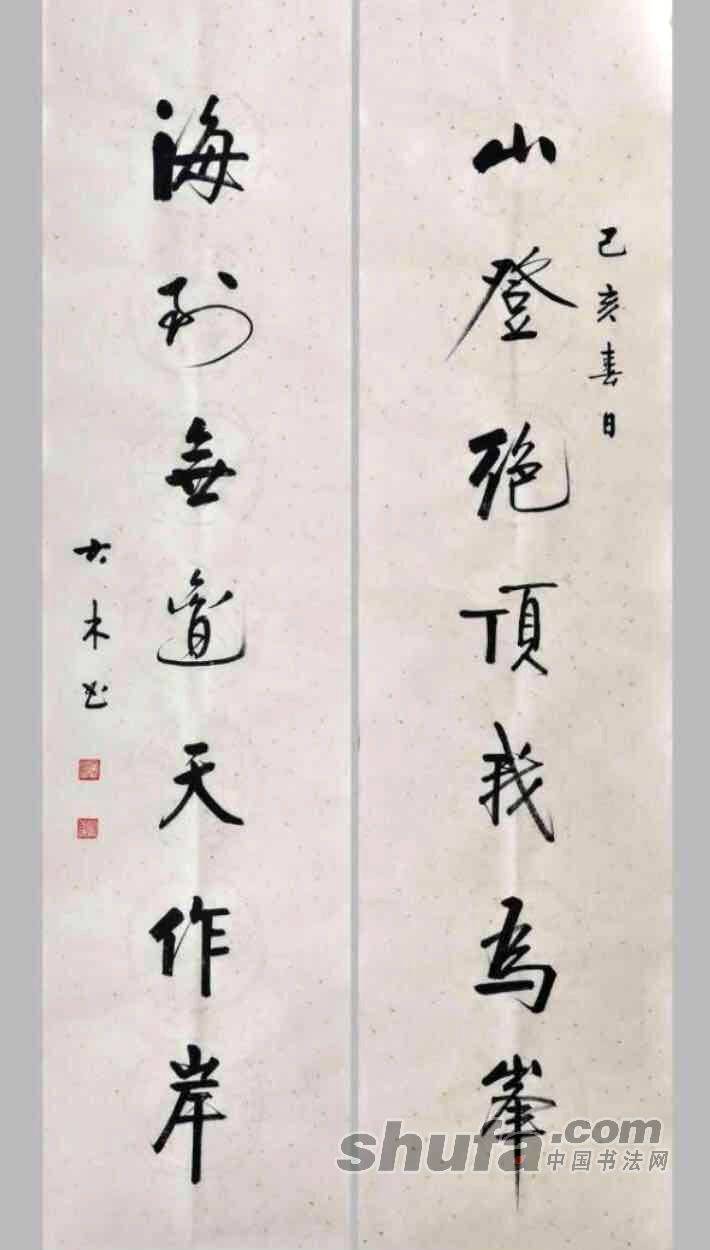 己亥春日
山登绝頂我為峯
海到無邊天作岸
大木书
shufa.com
中国书法网